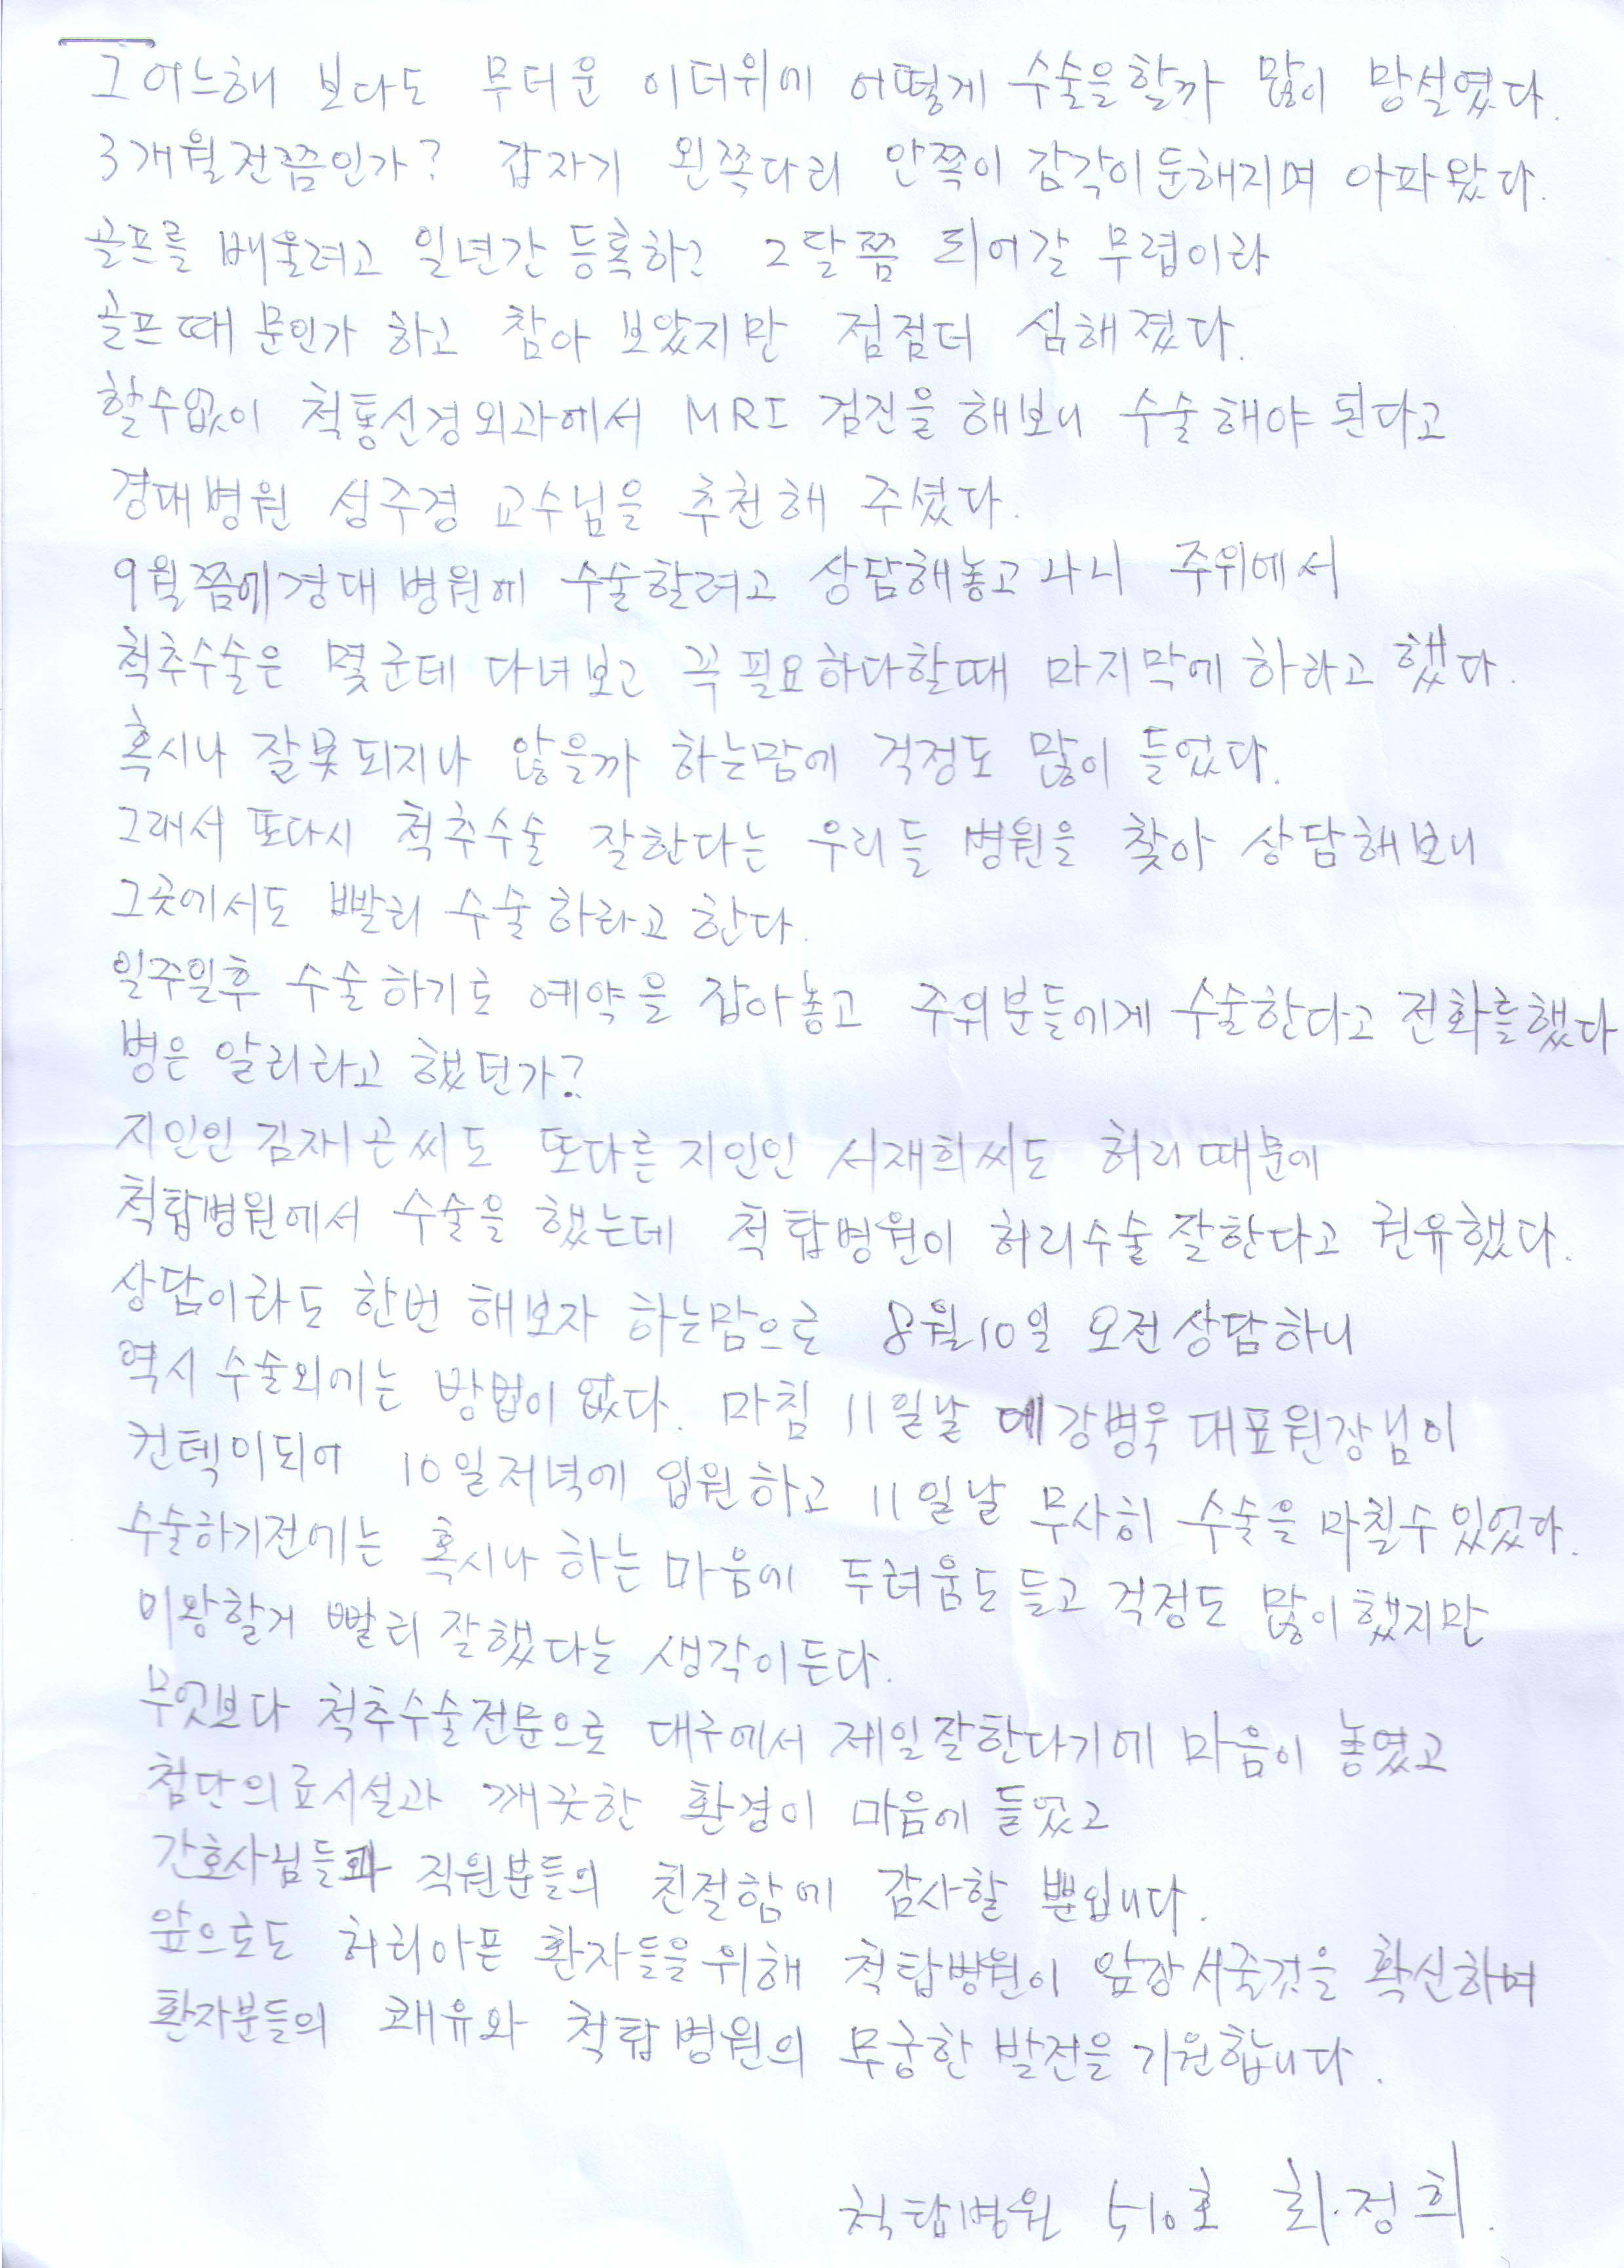 그어느해 보다도 무더운 이더위에 어떻게 수술을할까 많이 망설였다.
3개월전쯤인가? 갑자기 왼쪽다리 안쪽이 감각이둔해지며 아파왔다.
골프를 배울려고 일년간 등록하고 2달쯤 되어갈 무렵이라
골프때문인가 하고 참아 보았지만 점점더 심해졌다.
할수없이 척통신경외과에서 MRI 검진을 해보니 수술해야 된다고
경대병원 성주경 교수님을 추천해 주셨다.
9월쯤에경대병원에 수술할려고 상담해놓고나니 주위에서
척추수술은 몇군데 다녀보고 꼭필요하다할때 마지막에 하라고 했다.
혹시나 잘못되지나 않을까 하는맘에 걱정도 많이 들었다.
그래서 또다시 척추수술 잘한다는 우리들 병원을 찾아 상담해보니
그곳에서도 빨리 수술하라고 한다.
일주일후 수술하기로 예약을 잡아놓고 주위분들에게 수술한다고 전화를했다
병은 알리라고 했던가?
지인인 김재곤씨도 또다른 지인인 서재희씨도 허리때문에
척탑병원에서 수술을 했는데 척탑병원이 허리수술잘한다고 권유했다.
상담이라도 한번 해보자 하는맘으로 8월10일 오전상담하니
역시 수술외에는 방법이 없다. 마침 11일날 에강병욱대표원장님이
컨텍이되어 10일저녁에 입원하고 11일날 무사히 수술을 마칠수있었다.
수술하기전에는 혹시나 하는마음에 두려움도 들고 걱정도 많이했지만
이왕할거 빨리잘했다는 생각이든다.
무엇보다 척추수술전문으로 대구에서 제일잘한다기에 마음이 놓였고
첨단의료시설과 깨끗한 환경이 마음에 들었고
간호사님들과 직원분들의 친절함에 감사할 뿐입니다.
앞으로도 허리아픈 환자들을위해 척탑병원이 앞장서줄것을 확신하며
환자분들의 쾌유와 척탑병원의 무궁한 발전을기원합니다.
척탑병원 510호 최정희.